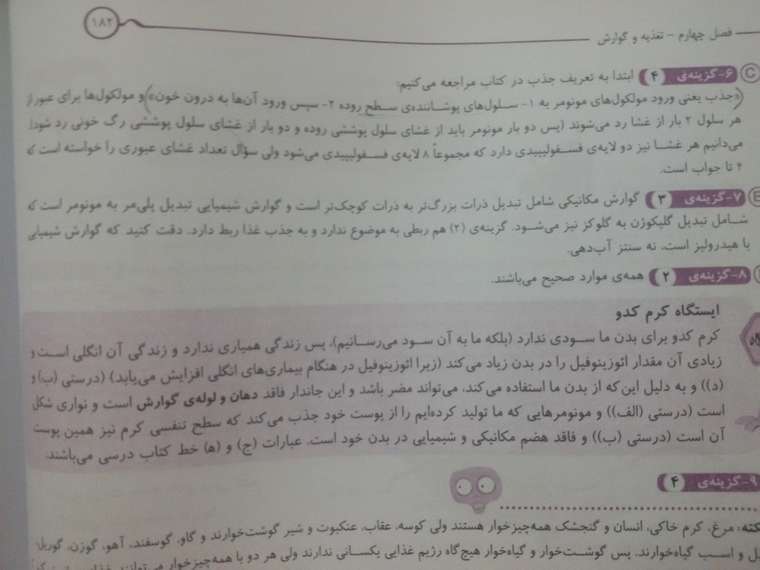 ۱۸۲
فصل چهارم – تغذیه و گوارش
۶-گزینه‌ی ۴ ابتدا به تعریف جذب در کتاب مراجعه می‌کنیم:
«جذب یعنی ورود مولکول‌های مونومر به ۱- سلول‌های پوشاننده‌ی سطح روده ۲- سپس ورود آن‌ها به درون خون» و مولکول‌ها برای عبور از
هر سلول ۲ بار از غشا رد می‌شوند (پس دو بار مونومر باید از غشای سلول پوششی روده و دو بار از غشای سلول پوششی رگ خونی رد شود).
می‌دانیم هر غشا نیز دو لایه‌ی فسفولیپیدی دارد که مجموعاً ۸ لایه‌ی فسفولیپیدی می‌شود ولی سؤال تعداد غشای عبوری را خواسته است که
۴ تا جواب است.
۷-گزینه‌ی ۳ گوارش مکانیکی شامل تبدیل ذرات بزرگ‌تر به ذرات کوچک‌تر است و گوارش شیمیایی تبدیل پلی‌مر به مونومر است که
شامل تبدیل گلیکوژن به گلوکز نیز می‌شود. گزینه‌ی (۲) هم ربطی به موضوع ندارد و به جذب غذا ربط دارد. دقت کنید که گوارش شیمیایی
با هیدرولیز است، نه سنتز آب‌دهی.
۸-گزینه‌ی ۲ همه‌ی موارد صحیح می‌باشند.
ایستگاه کرم کدو
کرم کدو برای بدن ما سودی ندارد (بلکه ما به آن سود می‌رسانیم)، پس زندگی همیاری ندارد و زندگی آن انگلی است و
زیادی آن مقدار ائوزینوفیل را در بدن زیاد می‌کند (زیرا ائوزینوفیل در هنگام بیماری‌های انگلی افزایش می‌یابد) (درستی (ب) و
(د)) و به دلیل این‌که از بدن ما استفاده می‌کند، می‌تواند مضر باشد و این جاندار فاقد دهان و لوله‌ی گوارش است و نواری شکل
است (درستی (الف)) و مونومرهایی که ما تولید کرده‌ایم را از پوست خود جذب می‌کند که سطح تنفسی کرم نیز همین پوست
آن است (درستی (ب)) و فاقد هضم مکانیکی و شیمیایی در بدن خود است. عبارات (ج) و (ه) خط کتاب درسی می‌باشند.
۹-گزینه‌ی ۴
نکته: مرغ، کرم خاکی، انسان و گنجشک همه‌چیزخوار هستند ولی کوسه، عقاب، عنکبوت و شیر گوشت‌خوارند و گاو، گوسفند، آهو، گوزن، گوریل،
و اسب گیاه‌خوارند. پس گوشت‌خوار و گیاه‌خوار هیچ‌گاه رژیم غذایی یکسانی ندارند ولی هر دو با همه‌چیزخوار می‌توانند